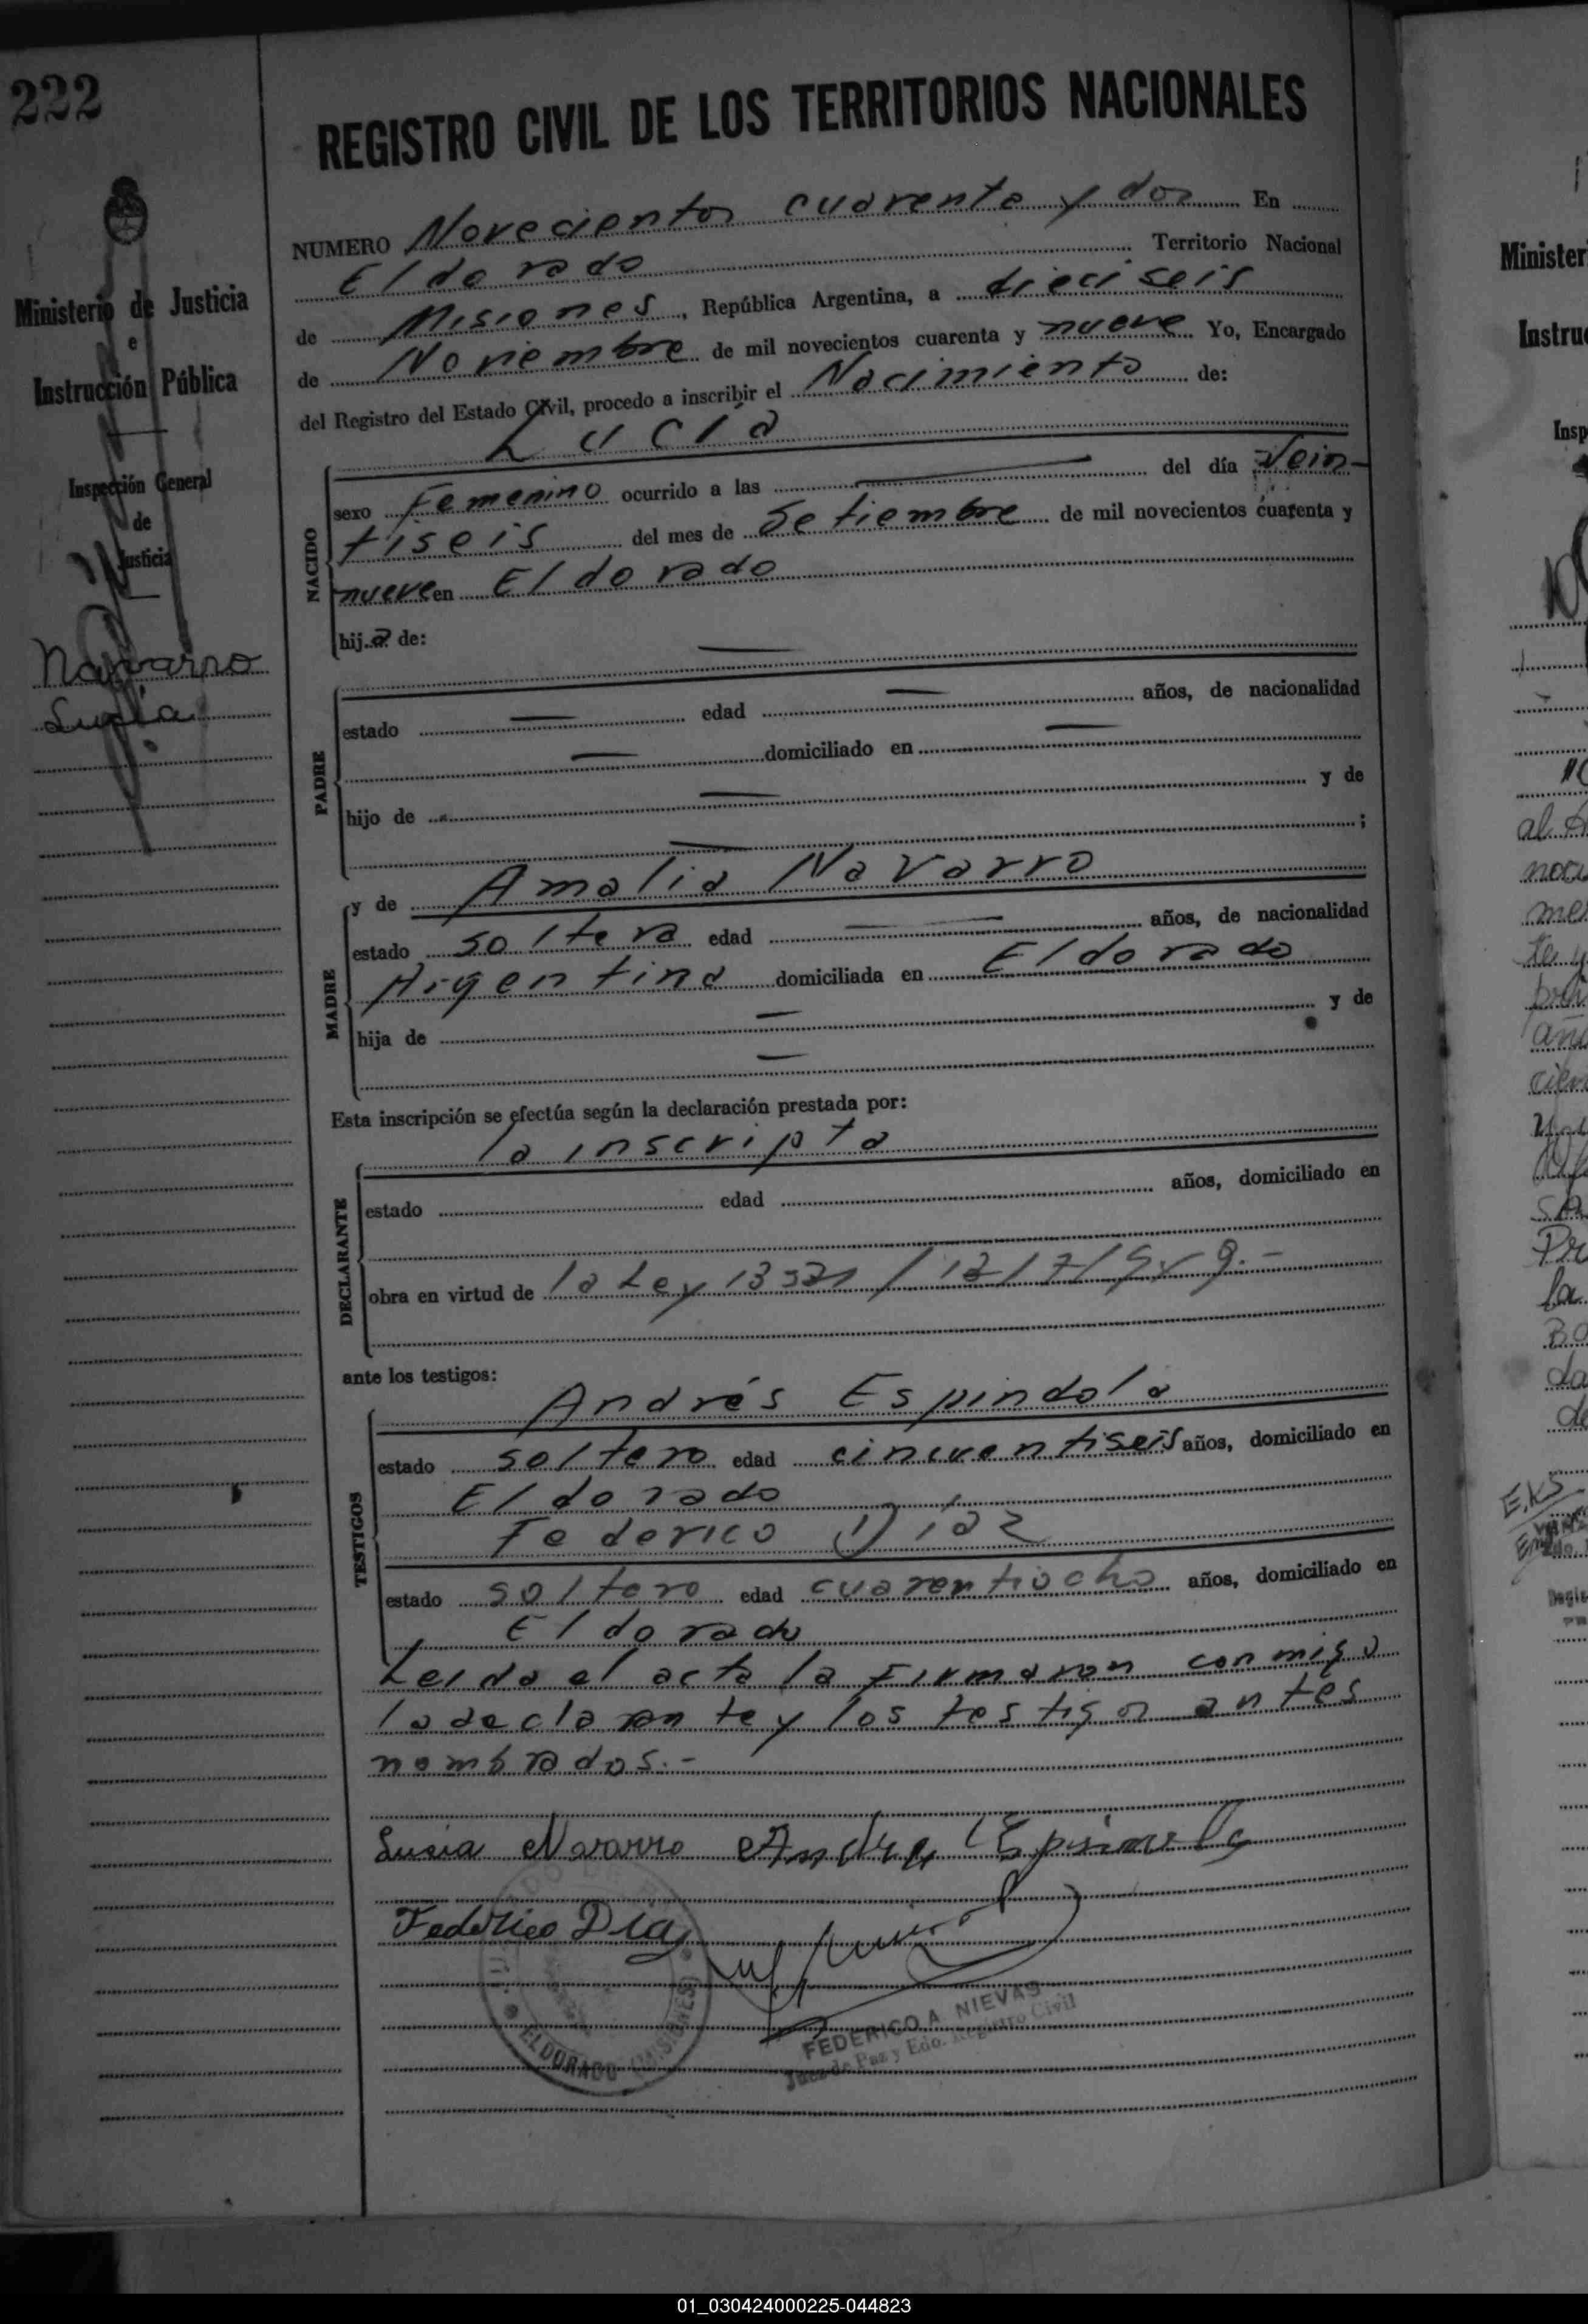 222
REGISTRO CIVIL DE LOS TERRITORIOS NACIONALES
Ministerio de Justicia
e
Instrucción Pública
Inspección General
de
Justicia
Navarro
Lucia
NUMERO Novecientos cuarenta y dos En
Eldorado Territorio Nacional
de Misiones, República Argentina, a dieciseis
de Noviembre de mil novecientos cuarenta y nueve Yo, Encargado
del Registro del Estado Civil, procedo a inscribir el Nacimiento de:
Lucía
NACIDO
sexo Femenino ocurrido a las — del día Vein-
tiseis del mes de Setiembre de mil novecientos cuarenta y
nueve en Eldorado
hija de:
PADRE
estado — edad — años, de nacionalidad
— domiciliado en —
hijo de — y de
— ;
MADRE
y de Amalia Navarro
estado soltera edad — años, de nacionalidad
Argentina domiciliada en Eldorado
hija de — y de
—
Esta inscripción se efectúa según la declaración prestada por:
la inscripta
DECLARANTE
estado edad años, domiciliado en
obra en virtud de la Ley
ante los testigos:
TESTIGOS
Andrés Espindola
estado soltero edad cincuentiseis años, domiciliado en
Eldorado
Federico Díaz
estado soltero edad cuarentiocho años, domiciliado en
Eldorado
Leida el acta la firmaron conmigo
la declarante y los testigos antes
nombrados.-
Lucia Navarro
Federico Diaz
ELDORADO (MISIONES)
FEDERICO A. NIEVAS
Juez de Paz y Edo. Registro Civil
Minister
Instru
Insp
01_030424000225-044823